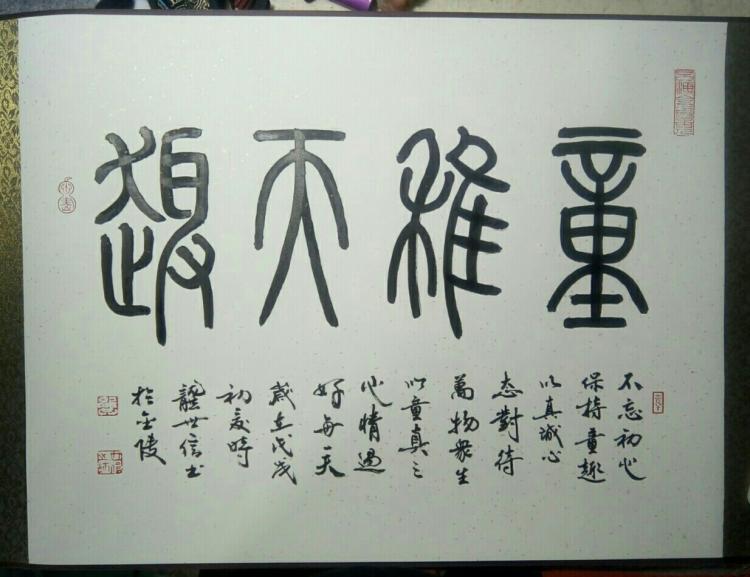 童稚天趣
不忘初心
保持童趣
以真誠心
态對待
萬物衆生
以童真之
心情過
好每一天
歲在戊戌
初夏時
龔世信书
於金陵